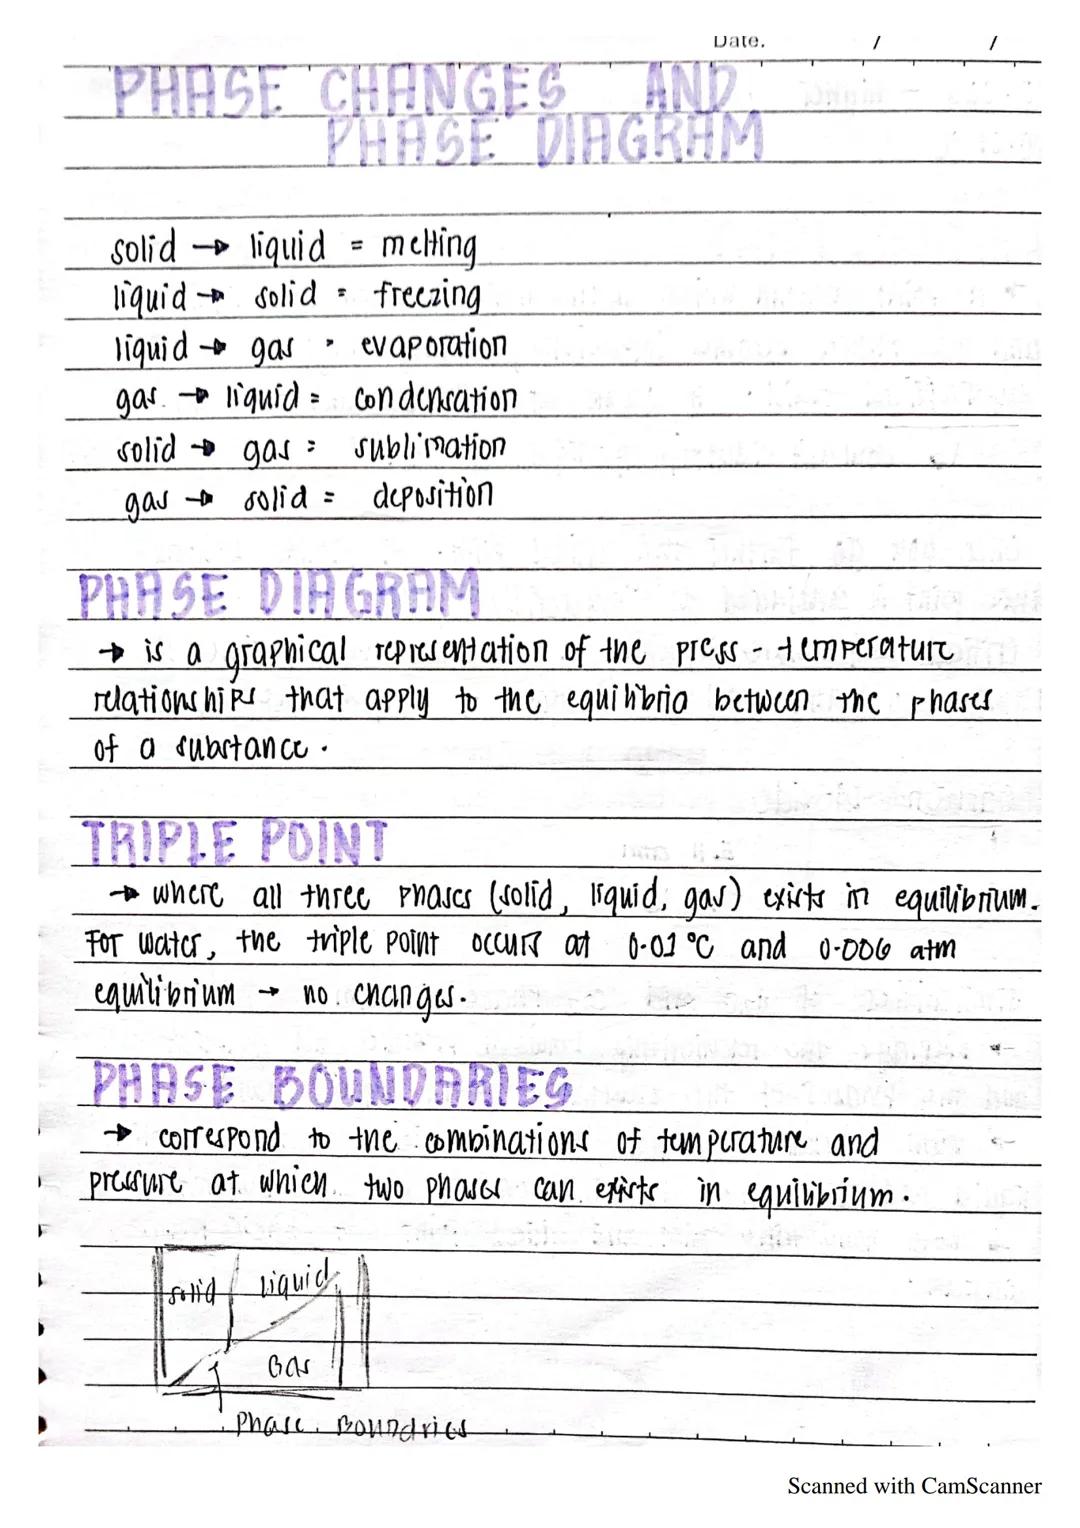 Date. / /
PHASE CHANGES AND
PHASE DIAGRAM
solid → liquid = melting
liquid → solid = freezing
liquid → gas = evaporation
gas → liquid = condensation
solid → gas = sublimation
gas → solid = deposition
PHASE DIAGRAM
→ is a graphical representation of the press - temperature
relationships that apply to the equilibria between the phases
of a substance.
TRIPLE POINT
→ where all three phases (solid, liquid, gas) exists in equilibrium.
For water, the triple point occurs at 0.01 °C and 0.006 atm
equilibrium → no changes.
PHASE BOUNDARIES
→ correspond to the combinations of temperature and
pressure at which two phases can exists in equilibrium.
solid liquid
Gas
Phase Boundries
Scanned with CamScanner